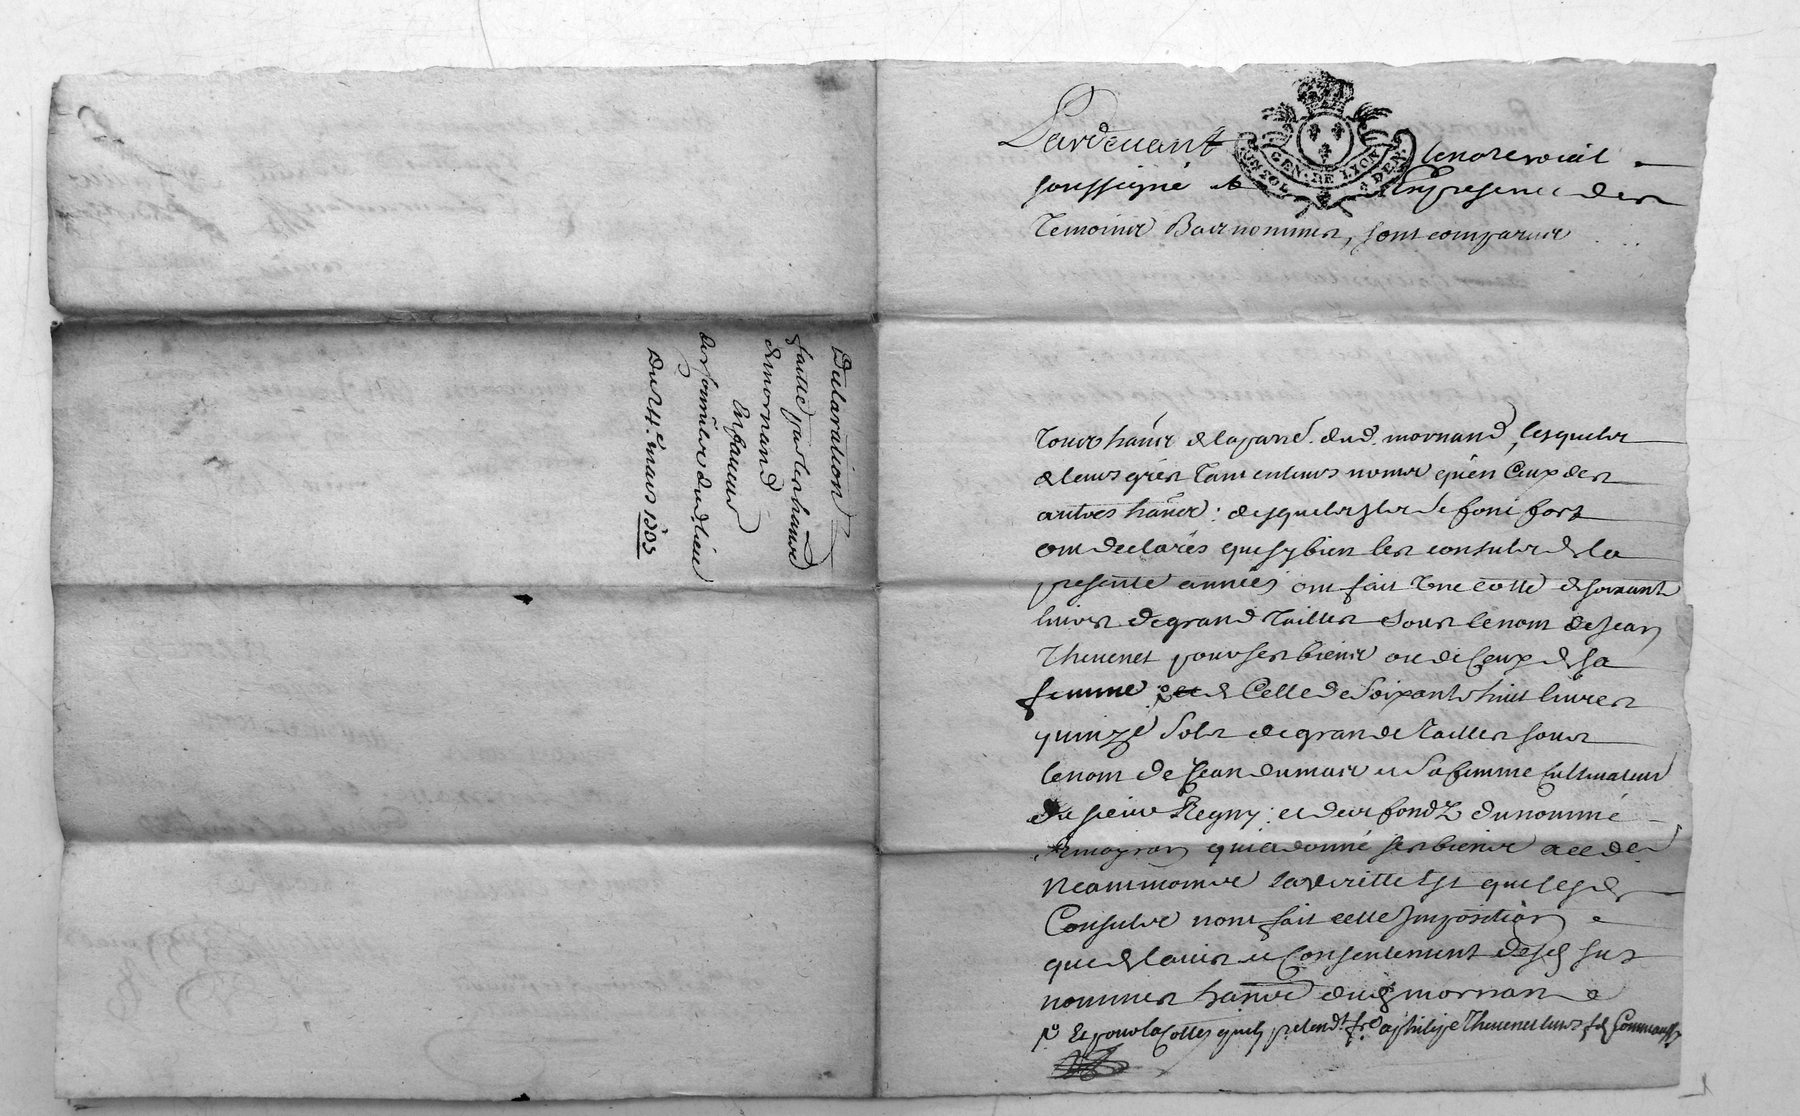 Declaration
faitte par les hants
de mornand
En faveur
des consuls dud. lieu
Du 24.e mars 1703
Pardevant le no.re roial
soussigné et En presence des
Temoins Bas nommes, sont comparus
GEN. DE LYON
Tous hants de la parr.e dud. mornand, lesquels
de leurs grés Tant en leurs noms qu'en Ceux des
autres hants: desquels ils se font fort
ont declarés que sy bien les consuls de la
presente année ont fait Une cotte de soixante
livres de grande Tailles sous le nom de Jean
Thevenet pour ses biens ou de Ceux de sa
femme, et de Celle de Soixante huit livres
quinze sols de grande Tailles sous
le nom de Jean dumas et sa femme Cultivateur
du sieur Regny: et des fondz du nommé
qui a donné ses biens
Neanmoins la veritté Est que lesd.
Consuls n'ont fait cette Imposition
que de l'avis et Consentement desd. sus
nommes hants dud. mornand
Et pour la Cottes quils pretend.t f.re a philipe Thevenet leurs